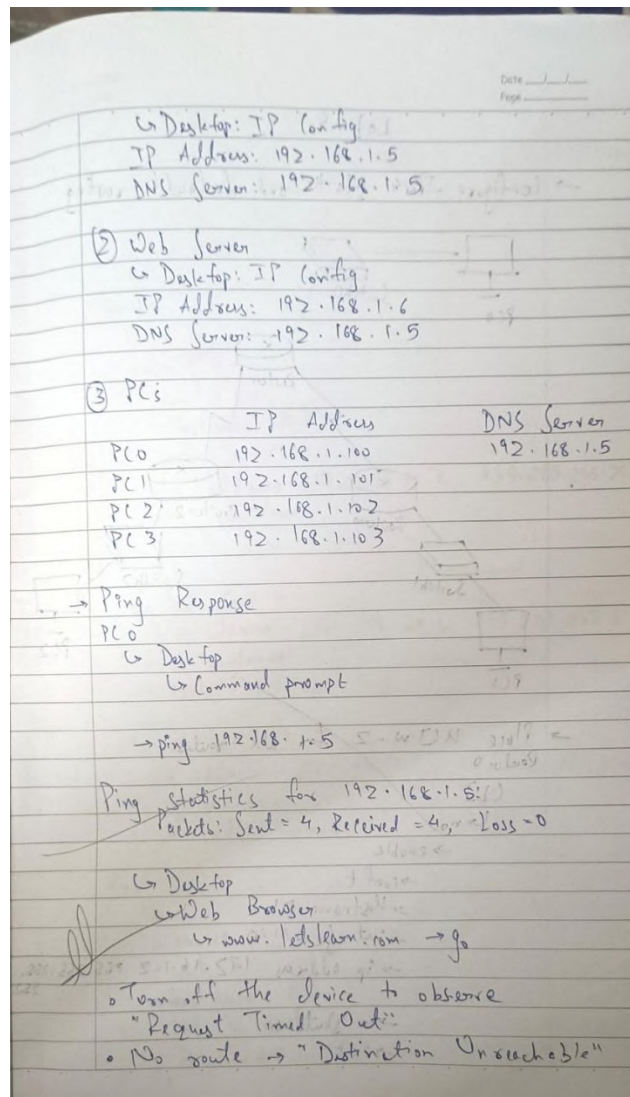 Date __/__/__
Page
↳ Desktop: IP Config
IP Address: 192.168.1.5
DNS Server: 192.168.1.5
② Web Server
↳ Desktop: IP Config
IP Address: 192.168.1.6
DNS Server: 192.168.1.5
③ PCs
IP Address DNS Server
PC0 192.168.1.100 192.168.1.5
PC1 192.168.1.101
PC2 192.168.1.102
PC3 192.168.1.103
→ Ping Response
PC0
↳ Desktop
↳ Command prompt
→ ping 192.168.1.5
Ping statistics for 192.168.1.5:
Packets: Sent = 4, Received = 4, Loss = 0
↳ Desktop
↳ Web Browser
↳ www.letslearn.com → go
• Turn off the device to observe
"Request Timed Out"
• No route → "Destination Unreachable"